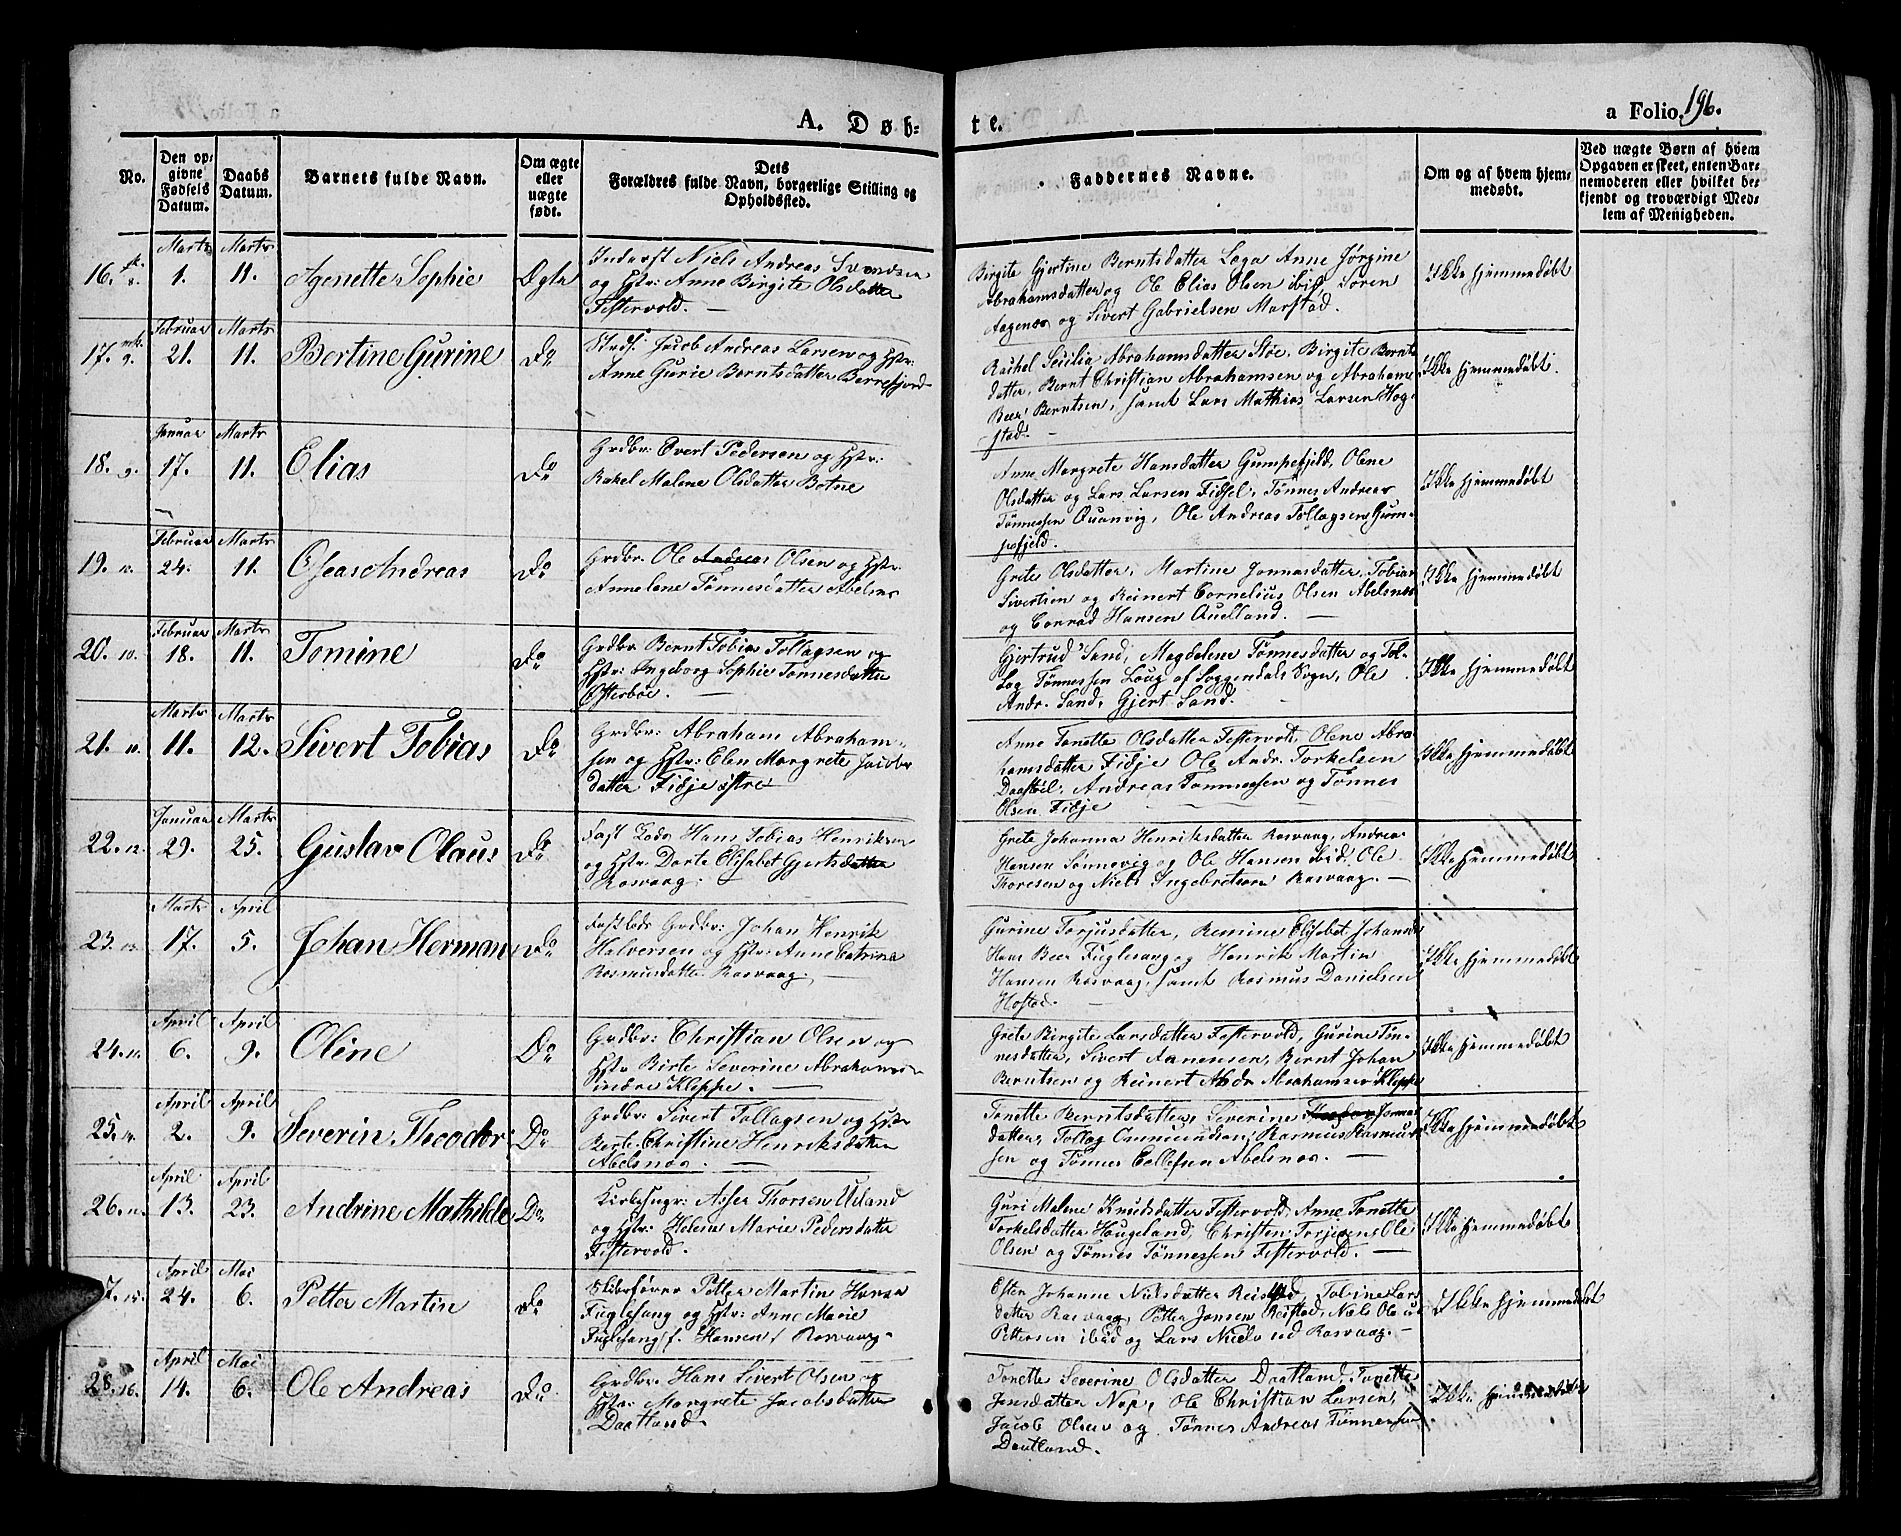 A. Døb-te.
a Folio 196.
No.
Den op-
givne
Fødsels
Datum.
Daabs
Datum.
Barnets fulde Navn.
Om ægte
eller
uægte
født.
Dets
Forældres fulde Navn, borgerlige Stilling og
Opholdssted.
Faddernes Navne.
Om og af hvem hjem-
medøbt.
Ved uægte Børn af hvem
Opgaven er skeet, enten Bar-
nemoderen eller hvilket be-
kjendt og troværdigt Med-
lem af Menigheden.
16. Marts 1. Marts 11. Agenette Sophie Ægte
Niels Andreas
og Hstr: Anne Birgite Olsdatter
Festervold.
Birgite Gjertine Berntsdatter Anne Jørgine
Abrahamsdatter og Ole Elias Olsen ibid, Søren
og Sivert Gabrielsen
Ikke hjemmedøbt
17. Februar 21. Marts 11. Bertine Gurine Do
Jacob Andreas Larsen og Hstr:
Anne Gurie Berntsdatter Berrefjord
Rachel Abrahamsdatter Støe, Birgite Bernts
datter, Bernt Christian Abrahamsen og Abraham
Beer Berntsen, samt Lars Mathias Larsen Hog-
stad.
Ikke hjemmedøbt.
18. 9. Januar 17. Marts 11. Elias Do
Grdbr: Evert Pedersen og Hstr:
Rakel Malene Olsdatter Botne
Anne Margrete Hansdatter Gumpefjeld, Olene
Olsdatter og Lars Larsen Fidsel, Tønnes Andreas
Tønnessen Quanvig, Ole Andreas Tollagsen Gum-
pefjeld.
Ikke hjemmedøbt
19. 10. Februar 24. Marts 11. Oseas Andreas Do
Grdbr. Ole Andreas Olsen og Hstr.
Annelene Tønnesdatter Abelsnes
Grete Olsdatter, Martine Jonnasdatter, Tobias
Sivertsen og Reinert Cornelius Olsen Abelsnes
og Conrad Hansen Quelland.
Ikke hjemmedøbt
20. 10. Februar 18. Marts 11. Tomine Do
Grdbr Bernt Tobias Tollagsen og
Hstr: Ingeborg Sophie Tønnesdatter
Østerboe.
Gjertrud Sand, Magdelene Tønnesdatter og Tol-
lag Tønnessen Loug af Soggendals Sogn, Ole
Andr. Sand, Gjert Sand.
Ikke hjemmedøbt
21. Marts 11. Marts 12. Sivert Tobias Do
Grdbr: Abraham Abraham-
sen og Hstr: Elen Margrete Jacobs
datter Fidje østre
Anne Tonette Olsdatter Festervold, Olene Abra
hamsdatter Fidje Ole Andr. Torkelsen
Daastøl, Andreas Tønnessen og Tønnes
Olsen Fidje
Ikke hjemmedøbt
22. 12. Januar 29. Marts 25. Gustav Olaus Do
Hans Tobias Henriksen
og Hstr Dorte Elisabet Gjertsdatter
Rasvaag.
Grete Johanna Henriksdatter Rasvaag, Andreas
Hansen Sønnevig og Ole Hansen ibid, Ole
Thoresen og Niels Ingebretsen Rasvaag.
Ikke hjemmedøbt
23. Marts 17. April 5. Johan Herman Do
Grdbr: Johan Henrik
Halversen og Hstr: Anne Catrine
Rasmusdatter Rasvaag.
Gurine Torjusdatter, Remine Elisabet Johanns
Hans Beer Fuglesang og Henrik Martin
Hansen Rasvaag, samt Rasmus Danielsen
Hofstad.
Ikke hjemmedøbt
24. April 6. April 9. Oline Do
Grdbr: Christian Olsen og
Hstr Birte Severine Abrahams
indre Kleppe.
Grete Birgite Larsdatter Festervold, Gurine Tøn-
nesdatter, Sivert Aanensen, Bernt Johan
Berntsen og Reinert Andr Abrahamsen Kleppe
Ikke hjemmedøbt
25. April 2. April 9. Severin Theodor Do
Grdbr: Sivert Tollagsen og Hstr
Berte Christine Henriksdatter
Abelsnes.
Tonette Berntsdatter, Severine Jonnas
datter, Tollag Ommundsen, Rasmus Rasmus
sen og Tønnes Abelsnes.
Ikke hjemmedøbt
26. April 13. April 23. Andrine Mathilde Do
Kirkesngr: Asser Thorsen Ueland
og Hstr: Helene Marie Pedersdatter
Festervold.
Guri Malene Knudsdatter Festervold, Anne Tonette
Torkelsdatter Haugeland, Christen Torjesen, Ole
Olsen og Tønnes Tønnessen Festervold.
Ikke hjemmedøbt
7. April 24. Mai 6. Petter Martin Do
Skibsfører Petter Martin Hansen
Fuglesang og Hstr: Anne Marie
Fuglesang f. Hansen / Rasvaag.
Ester Johanne Nielsdatter Reistad, Toline Lars
datter Rasvaag, Petter Jensen Reistad, Niels Olaus
Pettersen ibid og Lars Niels Rasvaag.
Ikke hjemmedøbt
28. 16. April 14. Mai 6. Ole Andreas Do
Grdbr. Hans Sivert Olsen og
Hstr: Margrete Jacobsdatter
Daatland
Tonette Severine Olsdatter Daatland, Tonette
Jensdatter Nap, Ole Christian Larsen,
Jacob Olsen og Tønnes Andreas Tønnessen
Daatland.
Ikke hjemmedøbt